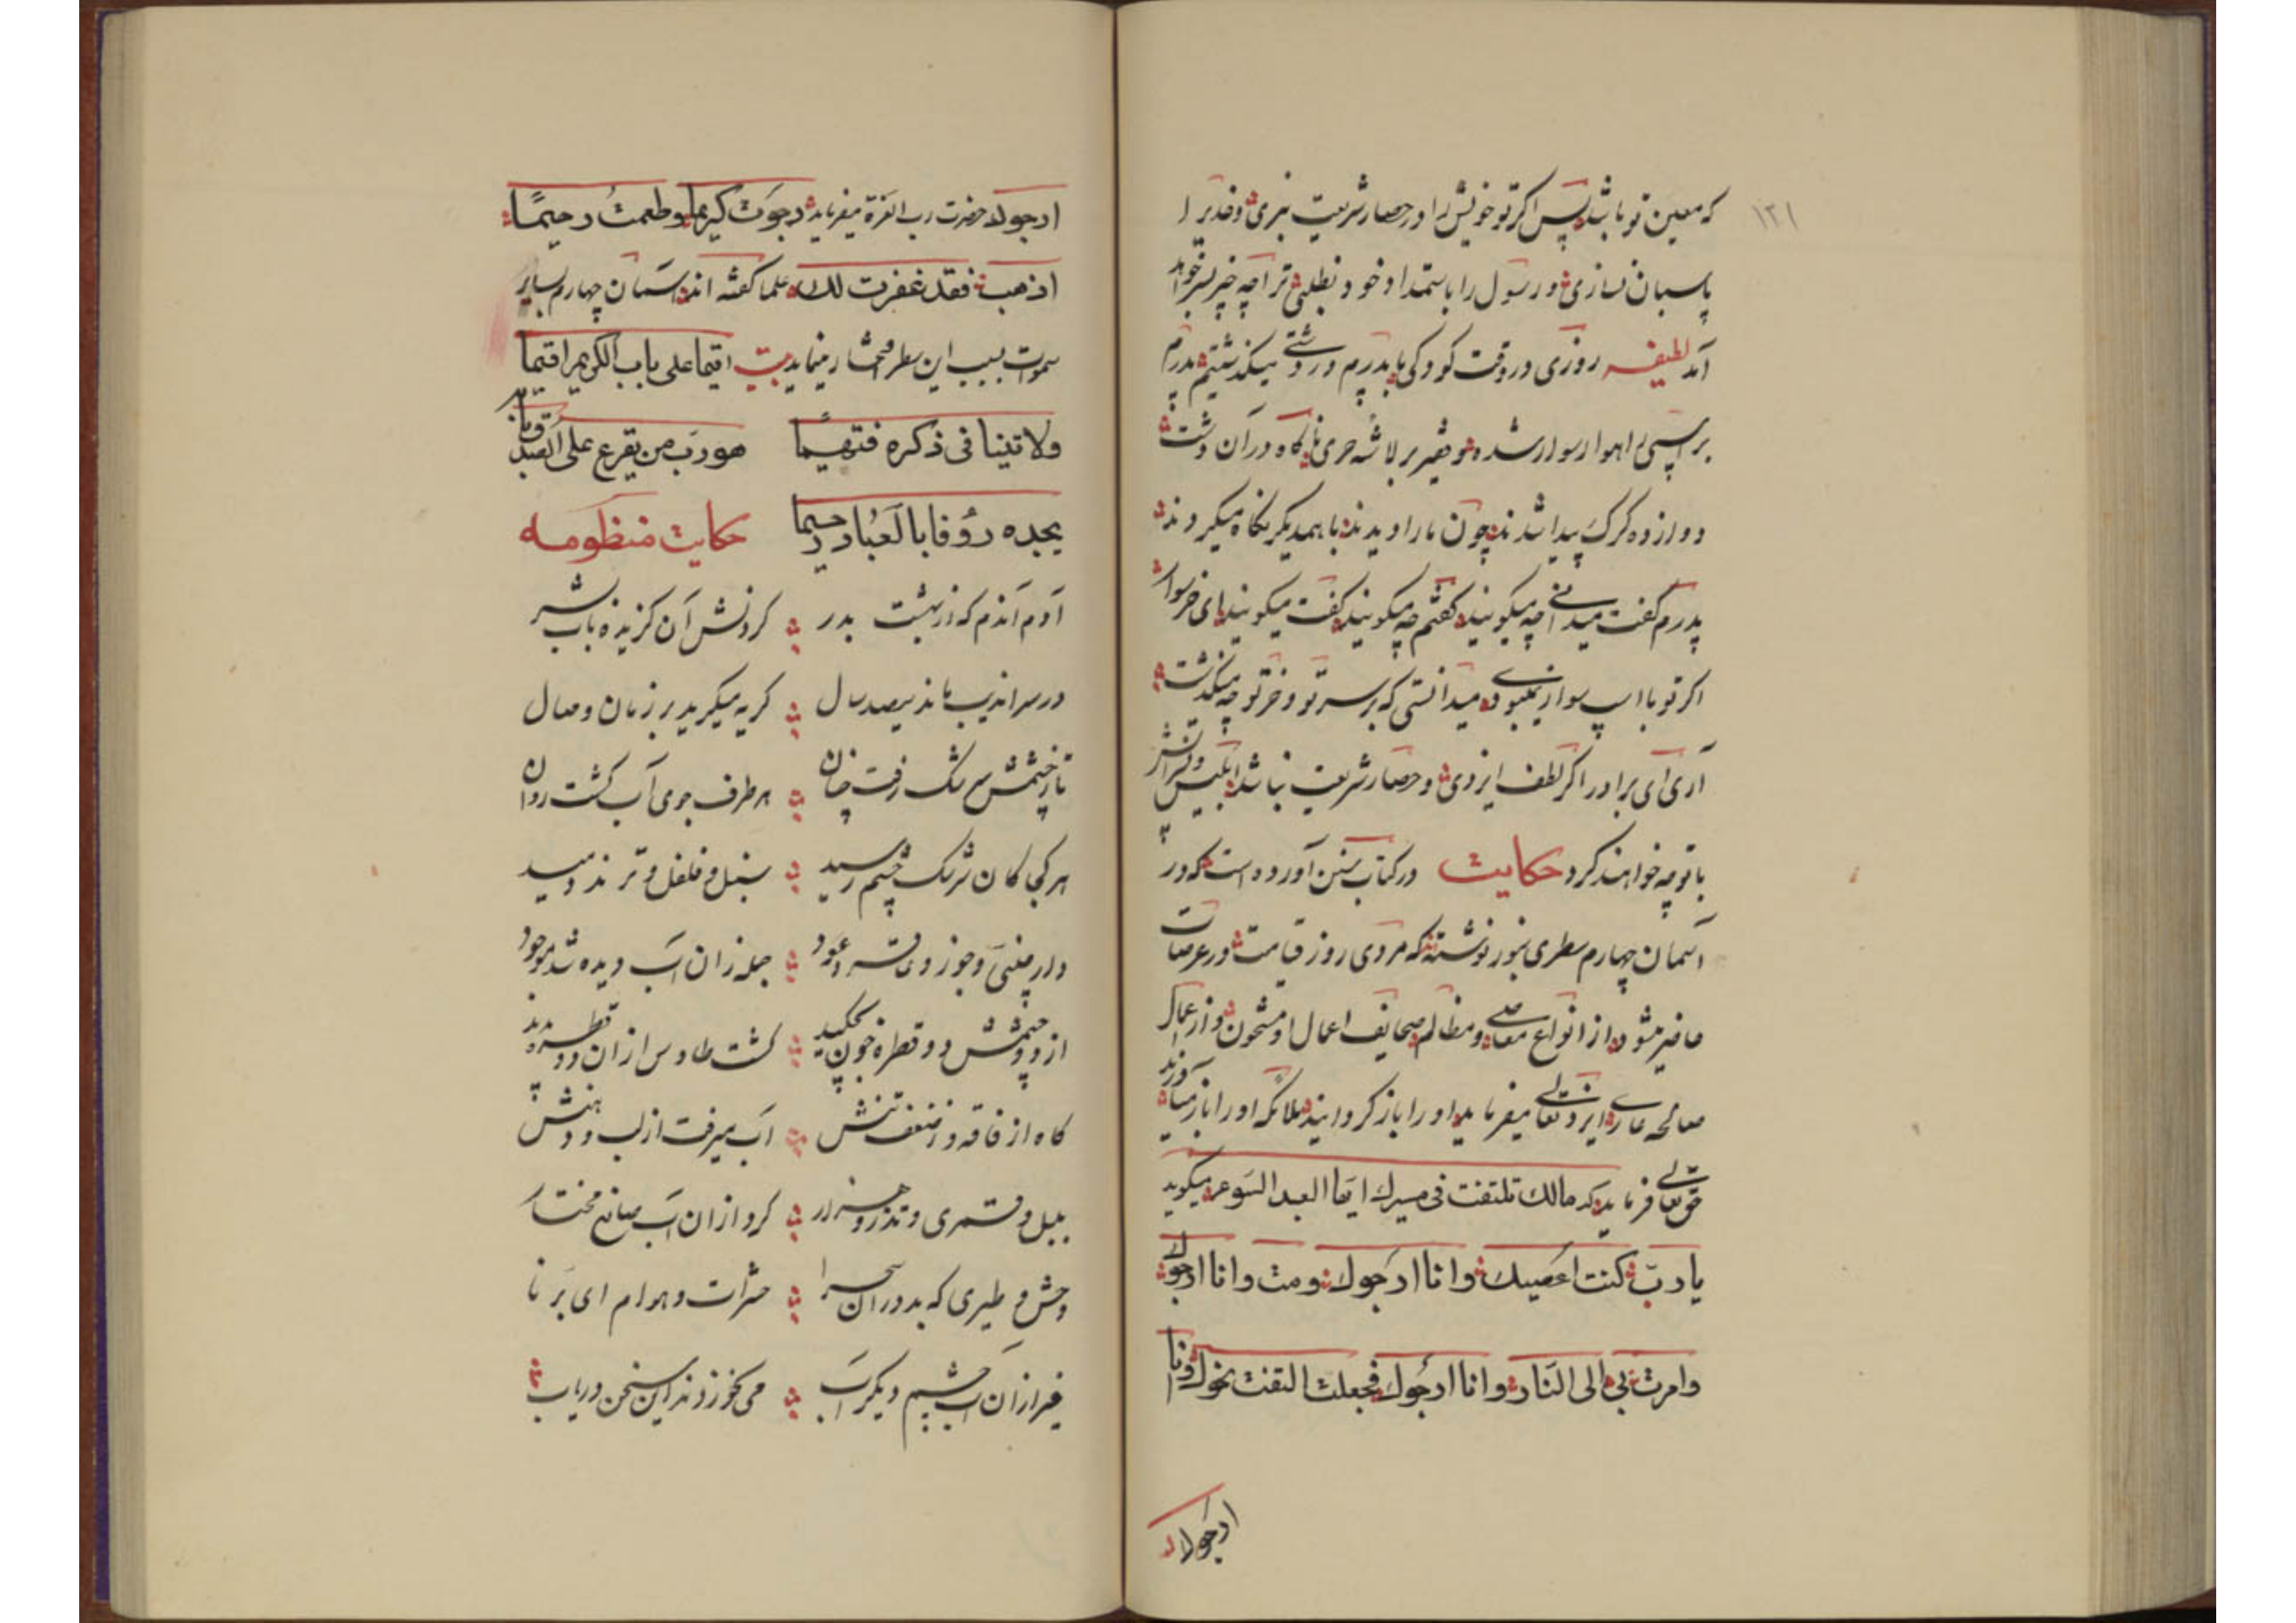 ۱۲۱
که معین تو باشد پس اگر تو خویش را در حصار شریعت نبری و قدیر را
پاسبان نسازی و رسول را باستمداد خود نطلبی ترا چه خبر بسر خواهد
آمد لطیفه روزی در وقت کودکی با پدرم در دشتی میگذشتیم پدرم
بر اسپی راهوار سوار شده و فقیر بر لاشه خری ناگاه در آن دشت
دوازده گرگ پیدا شدند چون ما را دیدند باهمدیگر نگاه میکردند
پدرم گفت میدانی چه میگویند گفتم چه میگویند گفت میگویند ای خر سوار
اگر تو با اسپ سوار نمیبودی میدانستی که بر سر تو و خر تو چه میگذشت
آری ای برادر اگر لطف ایزدی و حصار شریعت نباشد ابلیس و لشکرش
با تو چه خواهند کرد حکایت در کتاب سنن آورده است که در
آسمان چهارم سطری بنور نوشته‌اند که مردی روز قیامت در عرصات
حاضر میشود از انواع معاصی و مظالم صحایف اعمال او مشحون و از اعمال
صالحه عاری ایزد تعالی میفرماید او را باز گردانید ملائکه او را باز میآورند
حق تعالی فرماید که مالك تلتفت فی مسیرك ایها العبد السوء میگوید
یا ربّ کنت اعصیك وانا ارجوك ومت وانا ارجوك
وامرت بی الی النار وانا ارجوك فجعلت التفت نحوك وانا
ارجوك
ارجوك حضرت رب العزة میفرماید رجوت کریما وطعمت رحیمًا
اذهب فقد غفرت لك علما گفته اند آسمان چهارم بسایر
سموات بسبب این سطر افتخار مینماید بیت اقیما علی باب الکریم اقیما
ولا تنیا فی ذکره فتهیما هو رب من یقرع علی الصدق بابه
یجده رؤفا بالعباد رحیما حکایت منظومه
آدم آندم که از بهشت بدر کردش آن گزیده باب بشر
در سراندیب ماند سیصد سال گریه میکرد بر زمان وصال
تا ز چشمش سرشک رفت چنان هر طرف جوی آب گشت روان
هر کجا کان سرشک چشم رسید سنبل و فلفل و ترند دمید
دارچینی و جوز و عود جمله زان آب دیده شد موجود
از دو چشمش دو قطره خون بچکید گشت طاوس ازان دو قطره پدید
گاه از فاقه و ز ضعف تنش آب میرفت از لب و دهنش
بلبل و قمری و تذرو و هزار کرد ازان آب صانع مختار
وحش و طیری که بد دران صحرا حشرات و هوام ای برنا
غیر ازان آب چشم دیگر آب می نخوردند این سخن دریاب